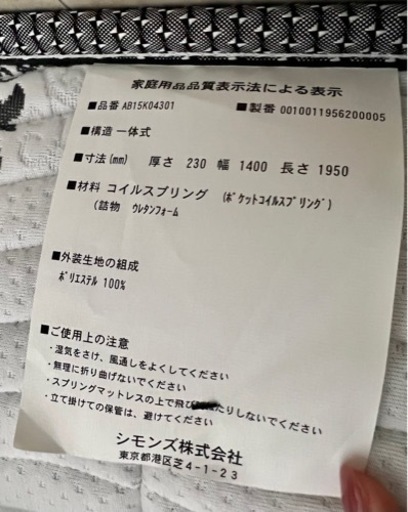 家庭用品品質表示法による表示
■品番 AB15K04301 ■製番 0010011956200005
■構造 一体式
■寸法(mm) 厚さ 230 幅 1400 長さ 1950
■材料 コイルスプリング (ﾎﾟｹｯﾄｺｲﾙｽﾌﾟﾘﾝｸﾞ)
(詰物 ｳﾚﾀﾝﾌｫｰﾑ
■外装生地の組成
ﾎﾟﾘｴｽﾃﾙ 100%
■ご使用上の注意
・湿気をさけ、風通しをよくしてください
・無理に折り曲げないでください
・スプリングマットレスの上で飛びたりしないでください
・立て掛けての保管は、避けてください
シモンズ株式会社
東京都港区芝4-1-23